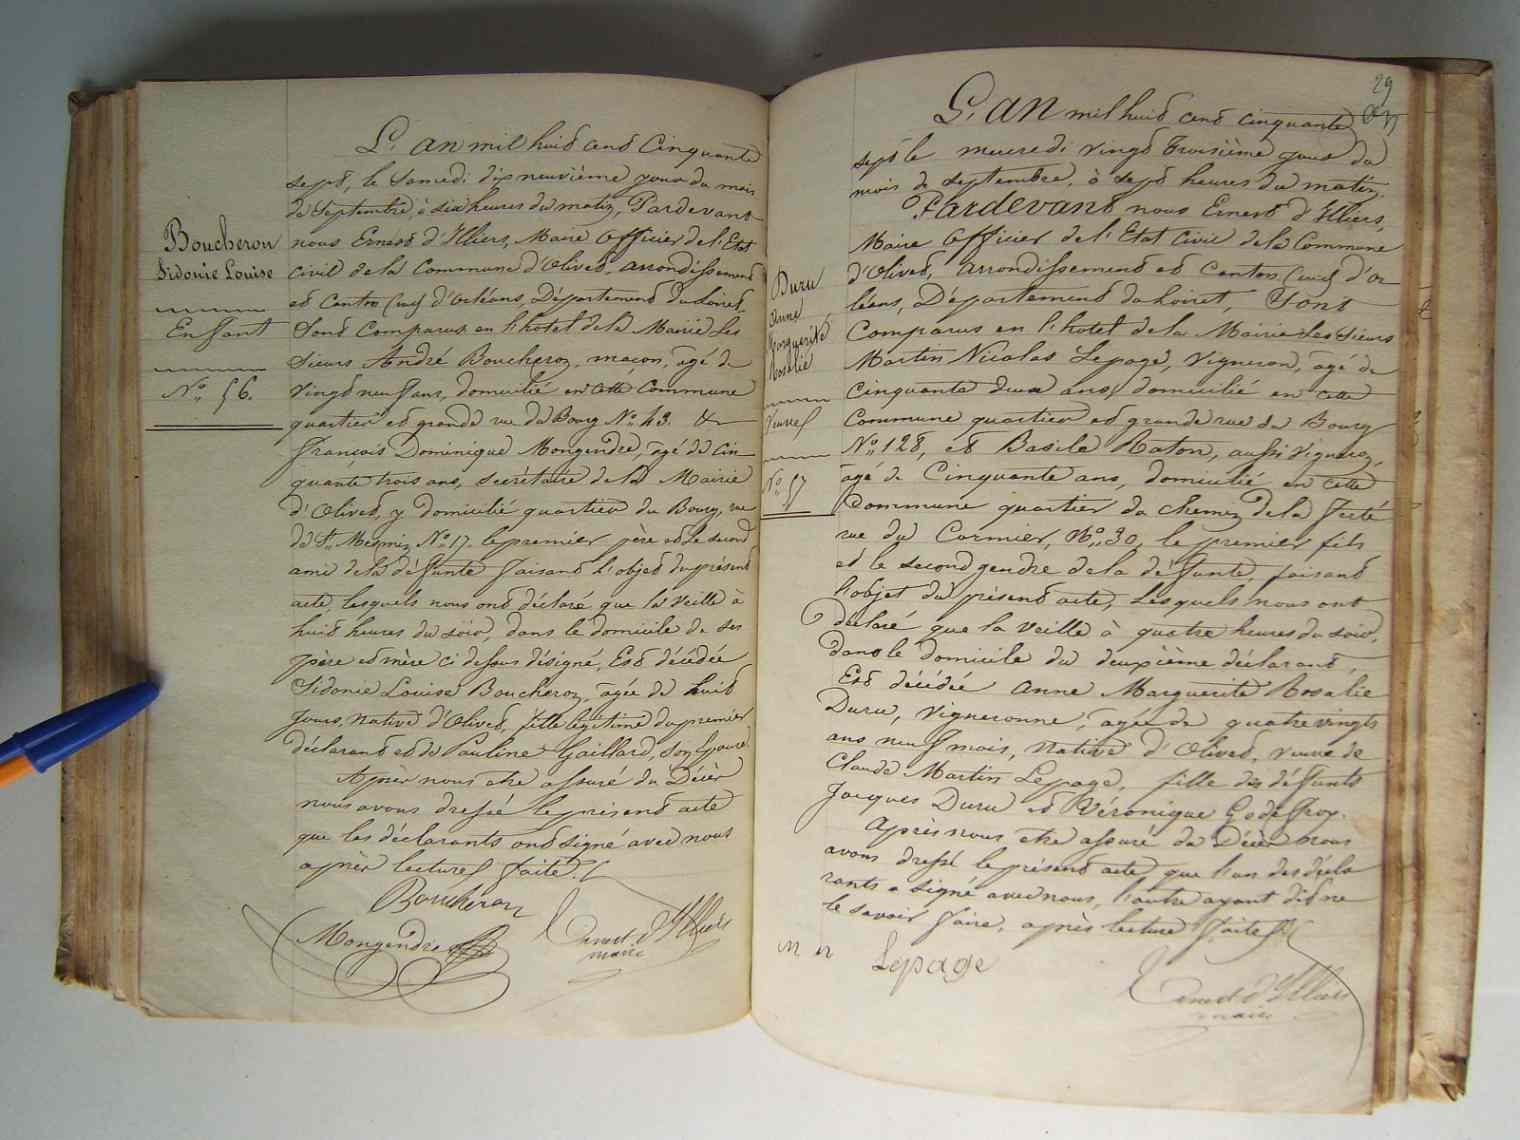 Boucheron
Sidonie Louise
Enfant
No. 56.
L'an mil huit cent Cinquante
sept, le Samedi dix neuvième jour du mois
de Septembre, à six heures du matin, Pardevant
nous Ernest d'Illiers, Maire Officier de l'Etat
Civil de la Commune d'Olivet, arrondissement
et Canton (sud) d'Orléans, Département du Loiret,
Sont Comparus en l'hôtel de la Mairie les
Sieurs André Boucheron, maçon, âgé de
vingt neuf ans, domicilié en cette Commune
quartier et grande rue du Bourg No. 43. &
François Dominique Mongendre, âgé de cin-
quante trois ans, secrétaire de la Mairie
d'Olivet, y domicilié quartier du Bourg, rue
de St. Mesmin No. 17. le premier père et le second
ami de la défunte faisant l'objet du présent
acte, lesquels nous ont déclaré que la veille à
huit heures du soir, dans le domicile de ses
père et mère ci dessus désigné, Est décédée
Sidonie Louise Boucheron, âgée de huit
jours, native d'Olivet, fille légitime du premier
déclarant et de Pauline Gaillard, son Epouse.
Après nous être assuré du Décès
nous avons dressé le présent acte
que les déclarants ont signé avec nous
après lecture faite.
Boucheron
Mongendre
Ernest d'Illiers
maire
29
Duru
Anne
Marguerite
Rosalie
Veuve
No. 57
L'AN mil huit cent cinquante
sept le mercredi vingt troisième jour du
mois de septembre, à sept heures du matin,
Pardevant nous Ernest d'Illiers,
Maire Officier de l'Etat Civil de la Commune
d'Olivet, arrondissement et Canton (sud) d'Or
léans, Département du Loiret, Sont
Comparus en l'hôtel de la Mairie les Sieurs
Martin Nicolas Lepage, Vigneron, âgé de
Cinquante deux ans, domicilié en cette
Commune quartier et grande rue du Bourg
No. 128, et Basile Raton, aussi vigneron,
âgé de Cinquante ans, domicilié en cette
Commune quartier du chemin de la Ferté
rue du Cormier, No. 30, le premier fils
et le second gendre de la défunte, faisant
l'objet du présent acte, Lesquels nous ont
déclaré que la veille à quatre heures du soir,
dans le domicile du deuxième déclarant,
Est décédée Anne Marguerite Rosalie
Duru, Vigneronne, âgée de quatre vingts
ans neuf mois, native d'Olivet, veuve de
Claude Martin Lepage, fille des défunts
Jacques Duru et Véronique Godefroy.
Après nous être assuré du Décès nous
avons dressé le présent acte que l'un des décla
rants a signé avec nous, l'autre ayant dit ne
le savoir faire, après lecture faite.
Lepage
Ernest d'Illiers
maire